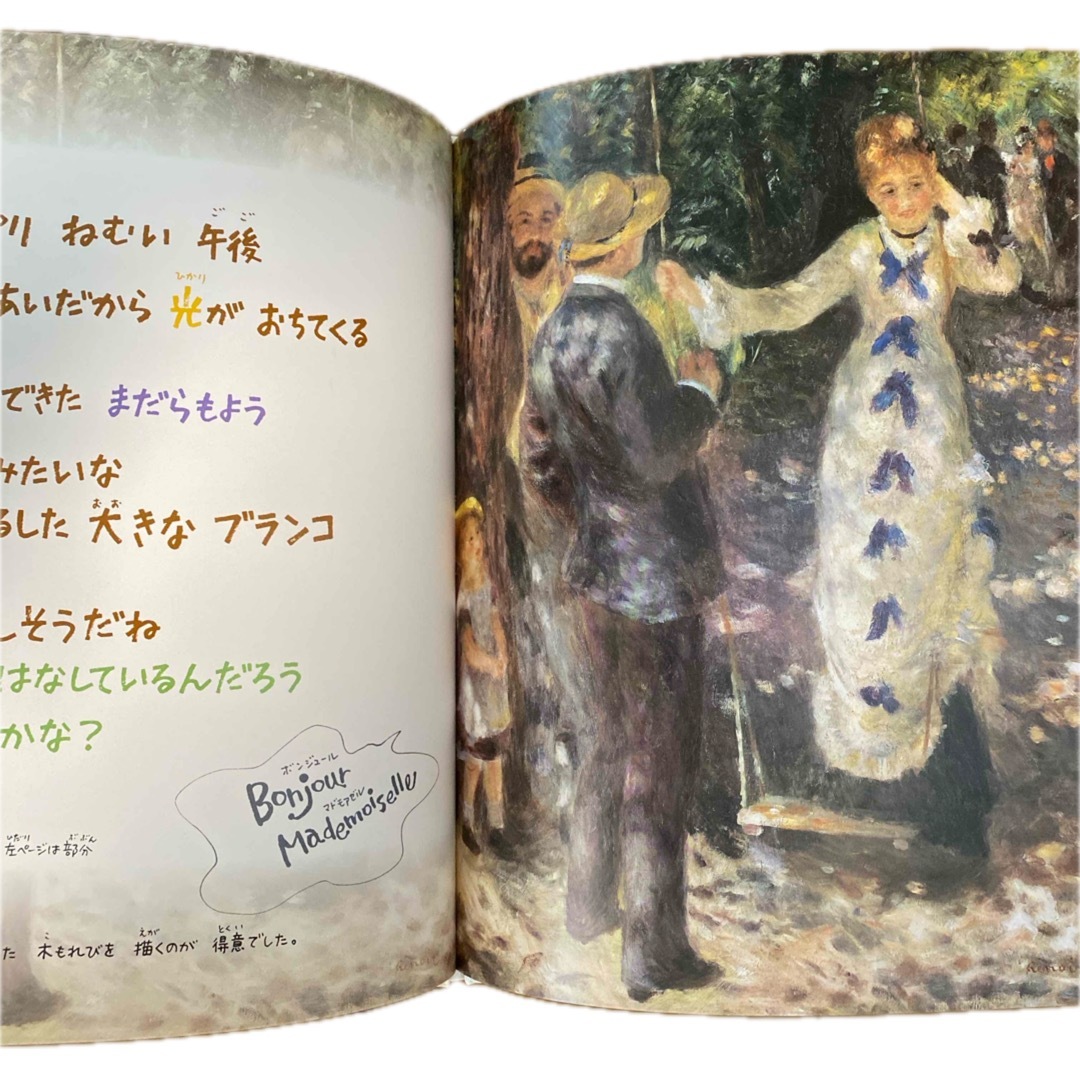 ねむい 午後
あいだから 光が おちてくる
できた まだらもよう
みたいな
した 大きな ブランコ
しそうだね
はなしているんだろう
かな？
ボンジュール
Bonjour
マドモアゼル
Mademoiselle
左ページは部分
た 木もれびを 描くのが 得意でした。